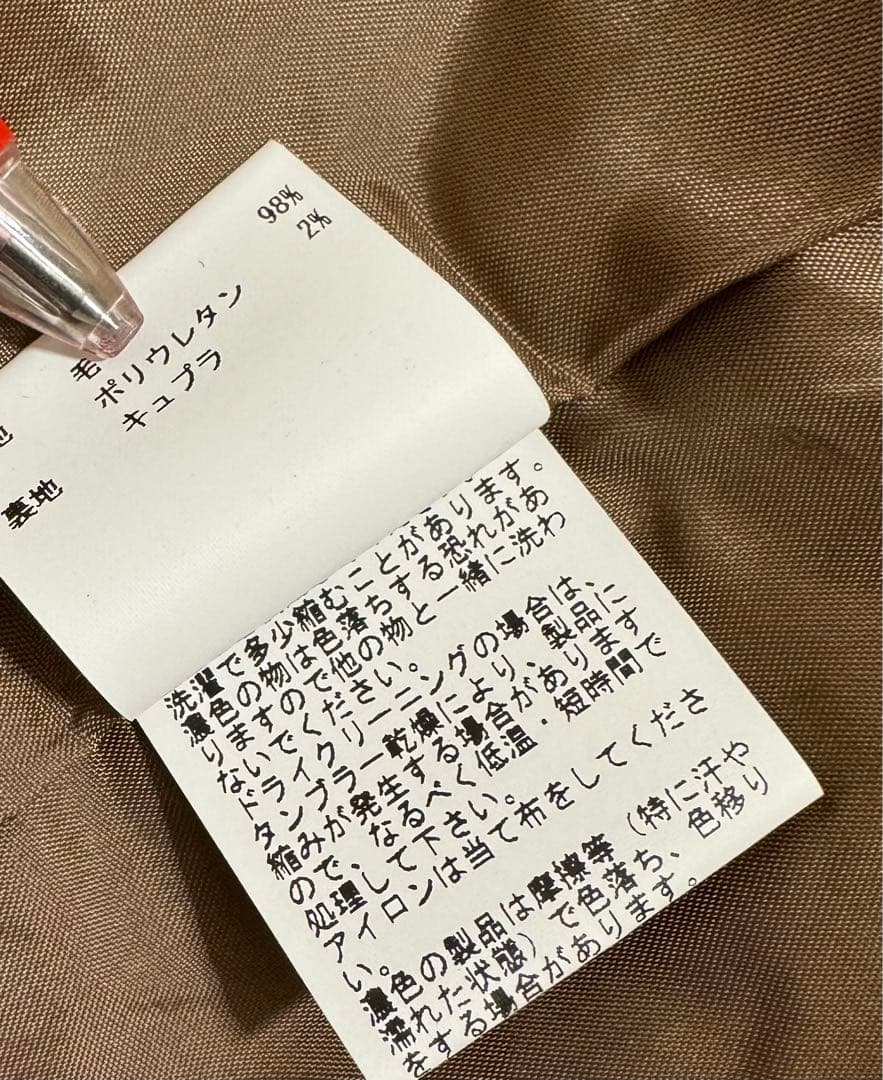 毛 98%
ポリウレタン 2%
キュプラ
地
裏地
洗濯で多少縮むことがあります。
濃色の物は色落ちする恐れがあ
りますので他の物と一緒に洗わ
ないでください。
ドライクリーニングの場合は、
タンブラー乾燥により、製品に
縮みが発生する場合がありますで
ので、なるべく低温・短時間で
処理して下さい。
アイロンは当て布をしてくださ
い。
濃色の製品は摩擦等(特に汗や
濡れた状態)で色落ち、色移り
をする場合があります。